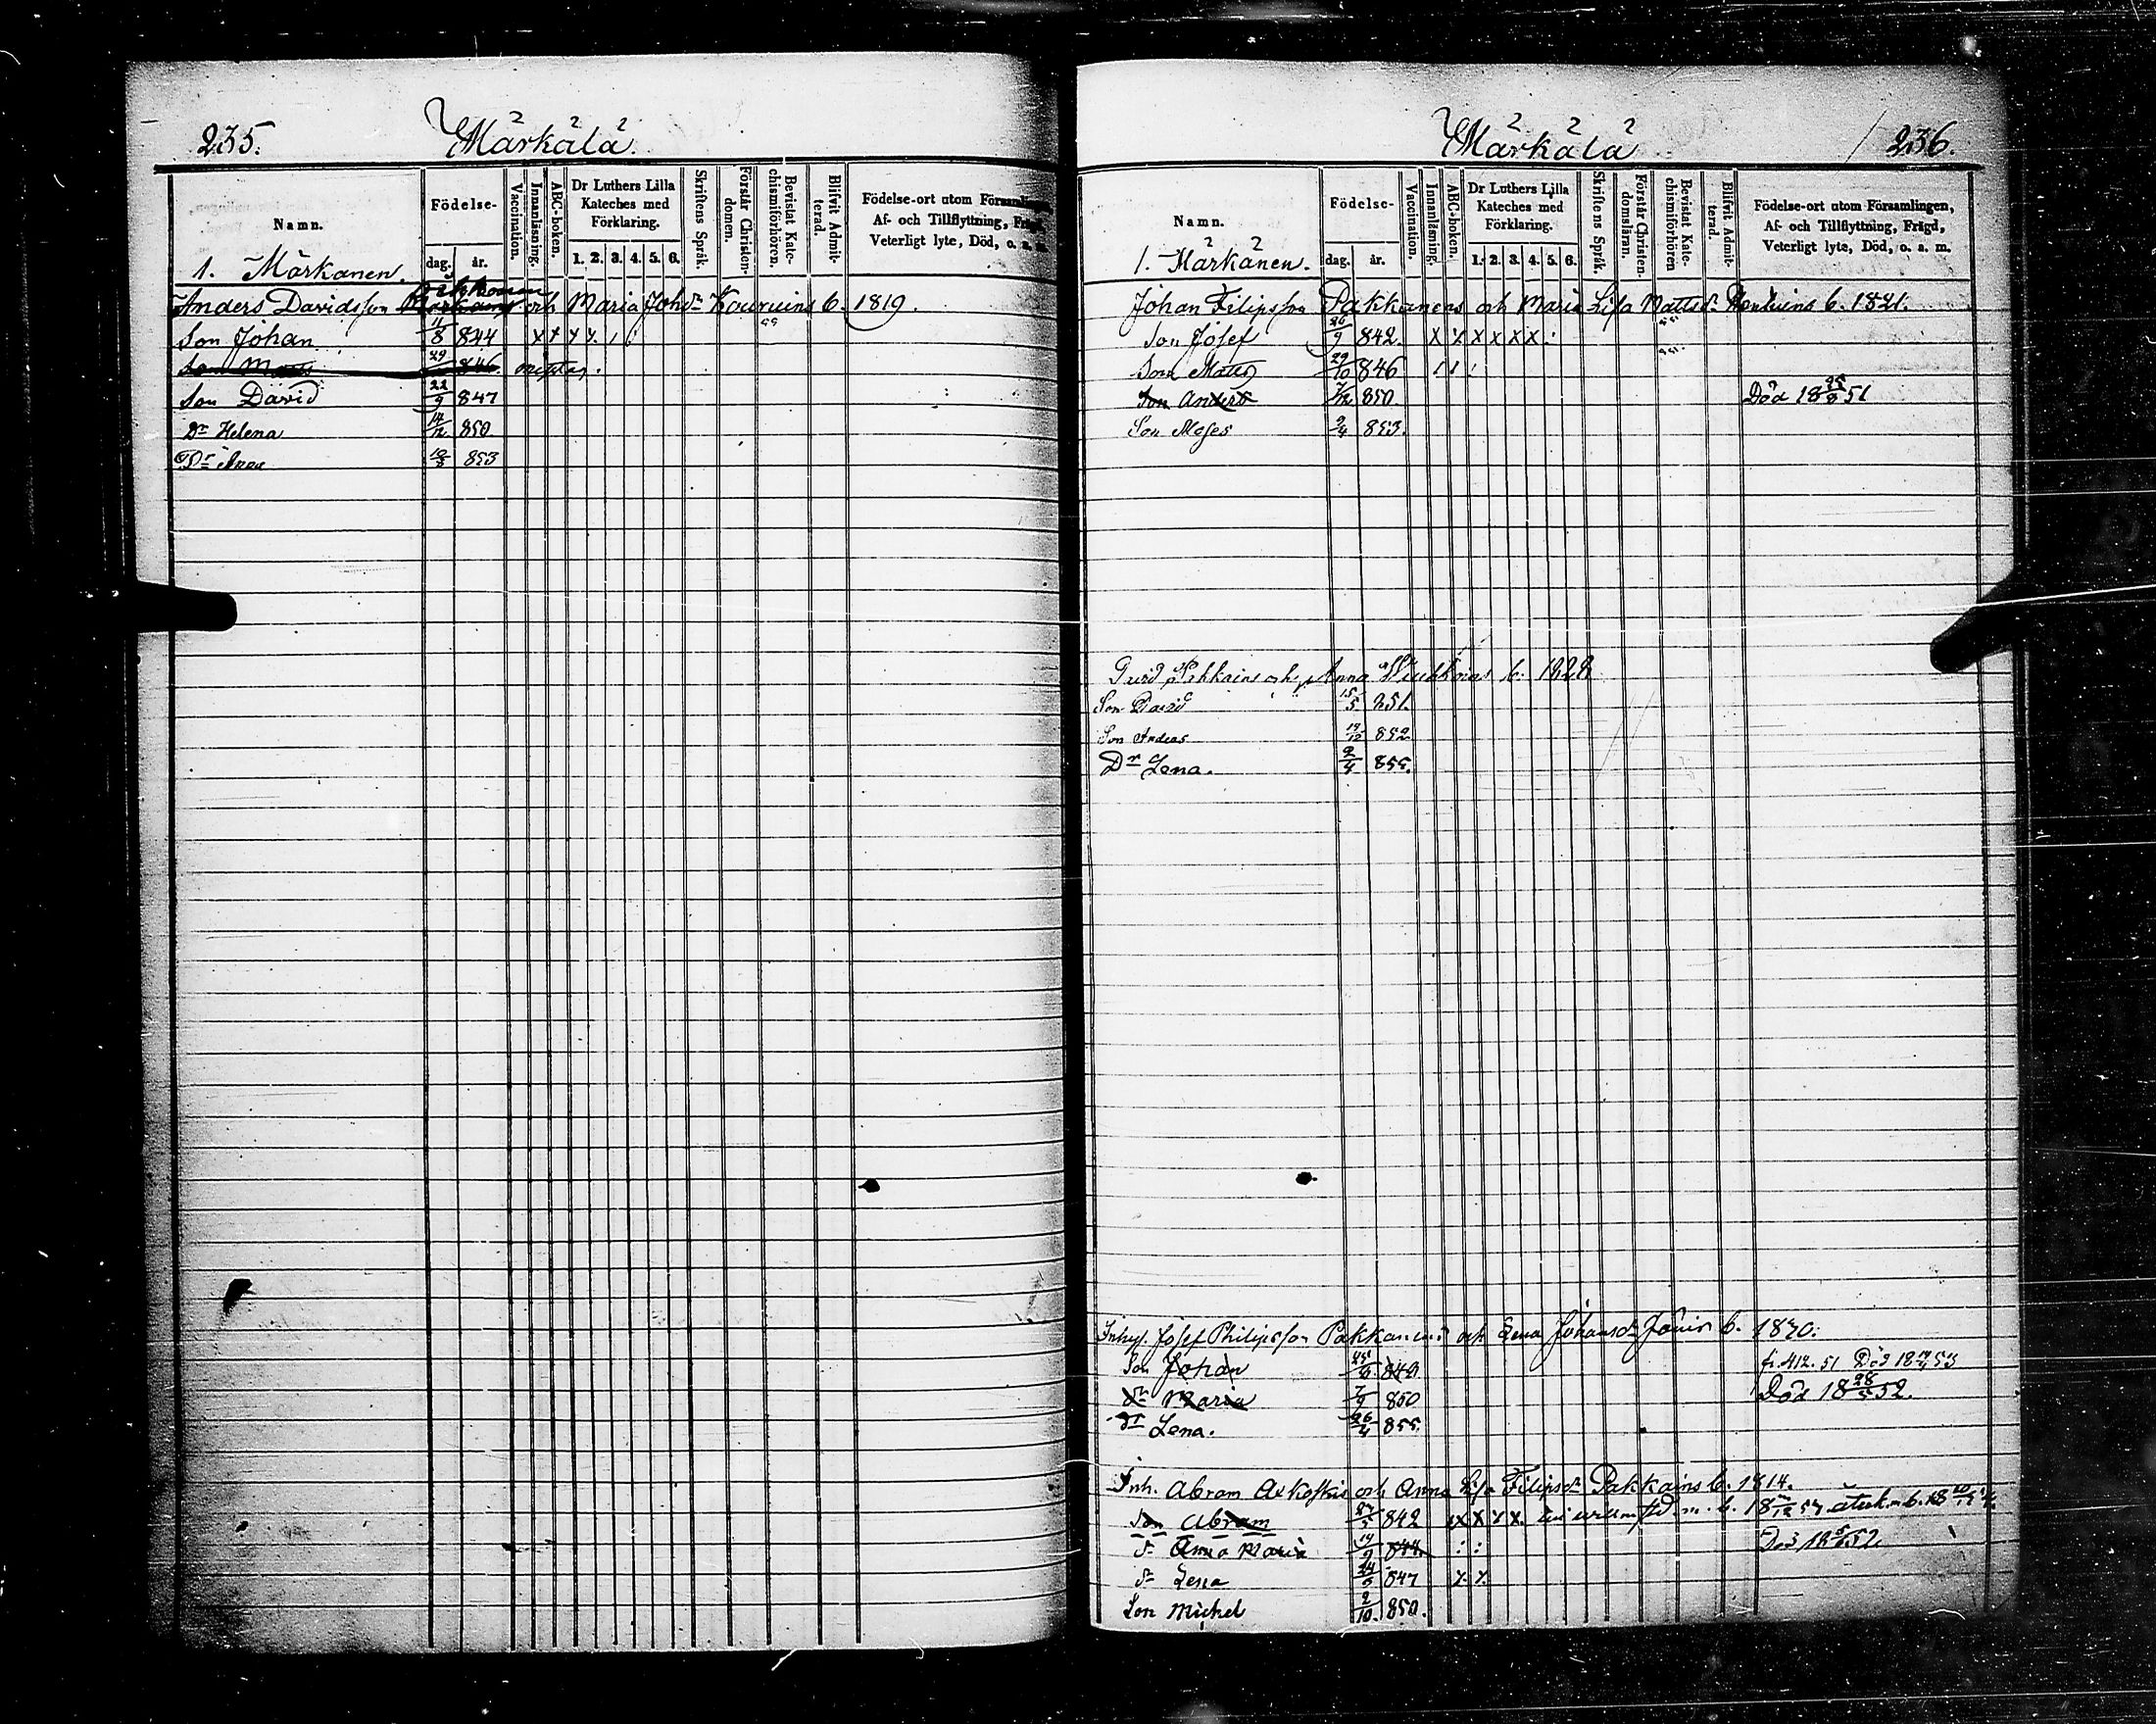 235.
Märkälä.
Namn.
Födelse-
dag.
år.
Vaccination.
Innanläsning.
ABC-boken.
Dr Luthers Lilla
Kateches med
Förklaring.
1. 2. 3. 4. 5. 6.
Skriftens Språk.
Förstår Christen-
domen.
Bevistat Kate-
chismiförhören.
Blifvit Admit-
terad.
Födelse-ort utom Församlingen,
Af- och Tillflyttning, Frägd,
Veterligt lyte, Död, o. a. m.
1. Märkänen.
Anders Davidsson och Maria Johsdr b. 1819.
Son Johan 11/8 844 x x x x
Son Matts 29 846
Son David 22/9 847
Dr Helena 14/12 850
Dr Anna 853
Märkälä
236.
Namn.
Födelse-
dag.
år.
Vaccination.
Innanläsning.
ABC-boken.
Dr Luthers Lilla
Kateches med
Förklaring.
1. 2. 3. 4. 5. 6.
Skriftens Språk.
Förstår Christen-
domsläran.
Bevistat Kate-
chismiförhören
Blifvit Admit-
terad.
Födelse-ort utom Församlingen,
Af- och Tillflyttning, Frägd,
Veterligt lyte, Död, o. a. m.
1. Märkänen.
Johan Filipsson Pakkanens och Maria Lisa Mattsdr b. 1821.
Son Josef 26/9 842. x x x x x x
Son Matts 29/10 846
Son Anders 7/12 850 Död 18 51
Son Moses 9/4 853.
och Anna b. 1828
Son David 15/5 851.
Son Andreas 19/12 852
Dr Lena. 2/4 855.
Inhys. Josef Philipsson Pakkanens och Lena Johansdr b. 1820.
Son Johan 849 fr. 412. 51 Död 18 53
dr Maria 7/9 850 Död 18 28/5 52.
dr Lena. 26/4 855.
Inh. Abram och Anna Lisa Filipsdr Pakkains b. 1814.
Son Abram 842 x x x x
dr Anna Maria 19/9 844. Död 18 52
dr Lena 24/6 847 x x
Son Michel 2/10. 850.